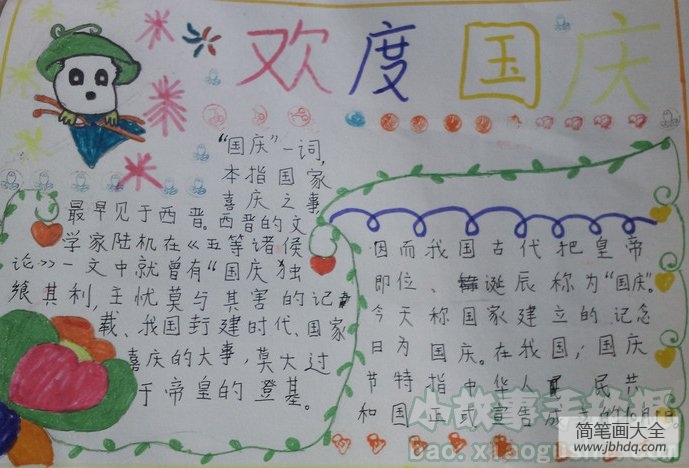 欢度国庆
"国庆"一词,
本指国家
喜庆之事
最早见于西晋。西晋的文
学家陆机在《五等诸侯
论》一文中就曾有"国庆独
飨其利,主忧莫与其害的记
载、我国封建时代、国家
喜庆的大事,莫大过
于帝皇的登基。
因而我国古代把皇帝
即位、诞辰称为"国庆"。
今天称国家建立的记念
日为国庆。在我国,国庆
节特指中华人民共
和国正式宣告成立的
小故事
简笔画大全
www.jbhdq.com